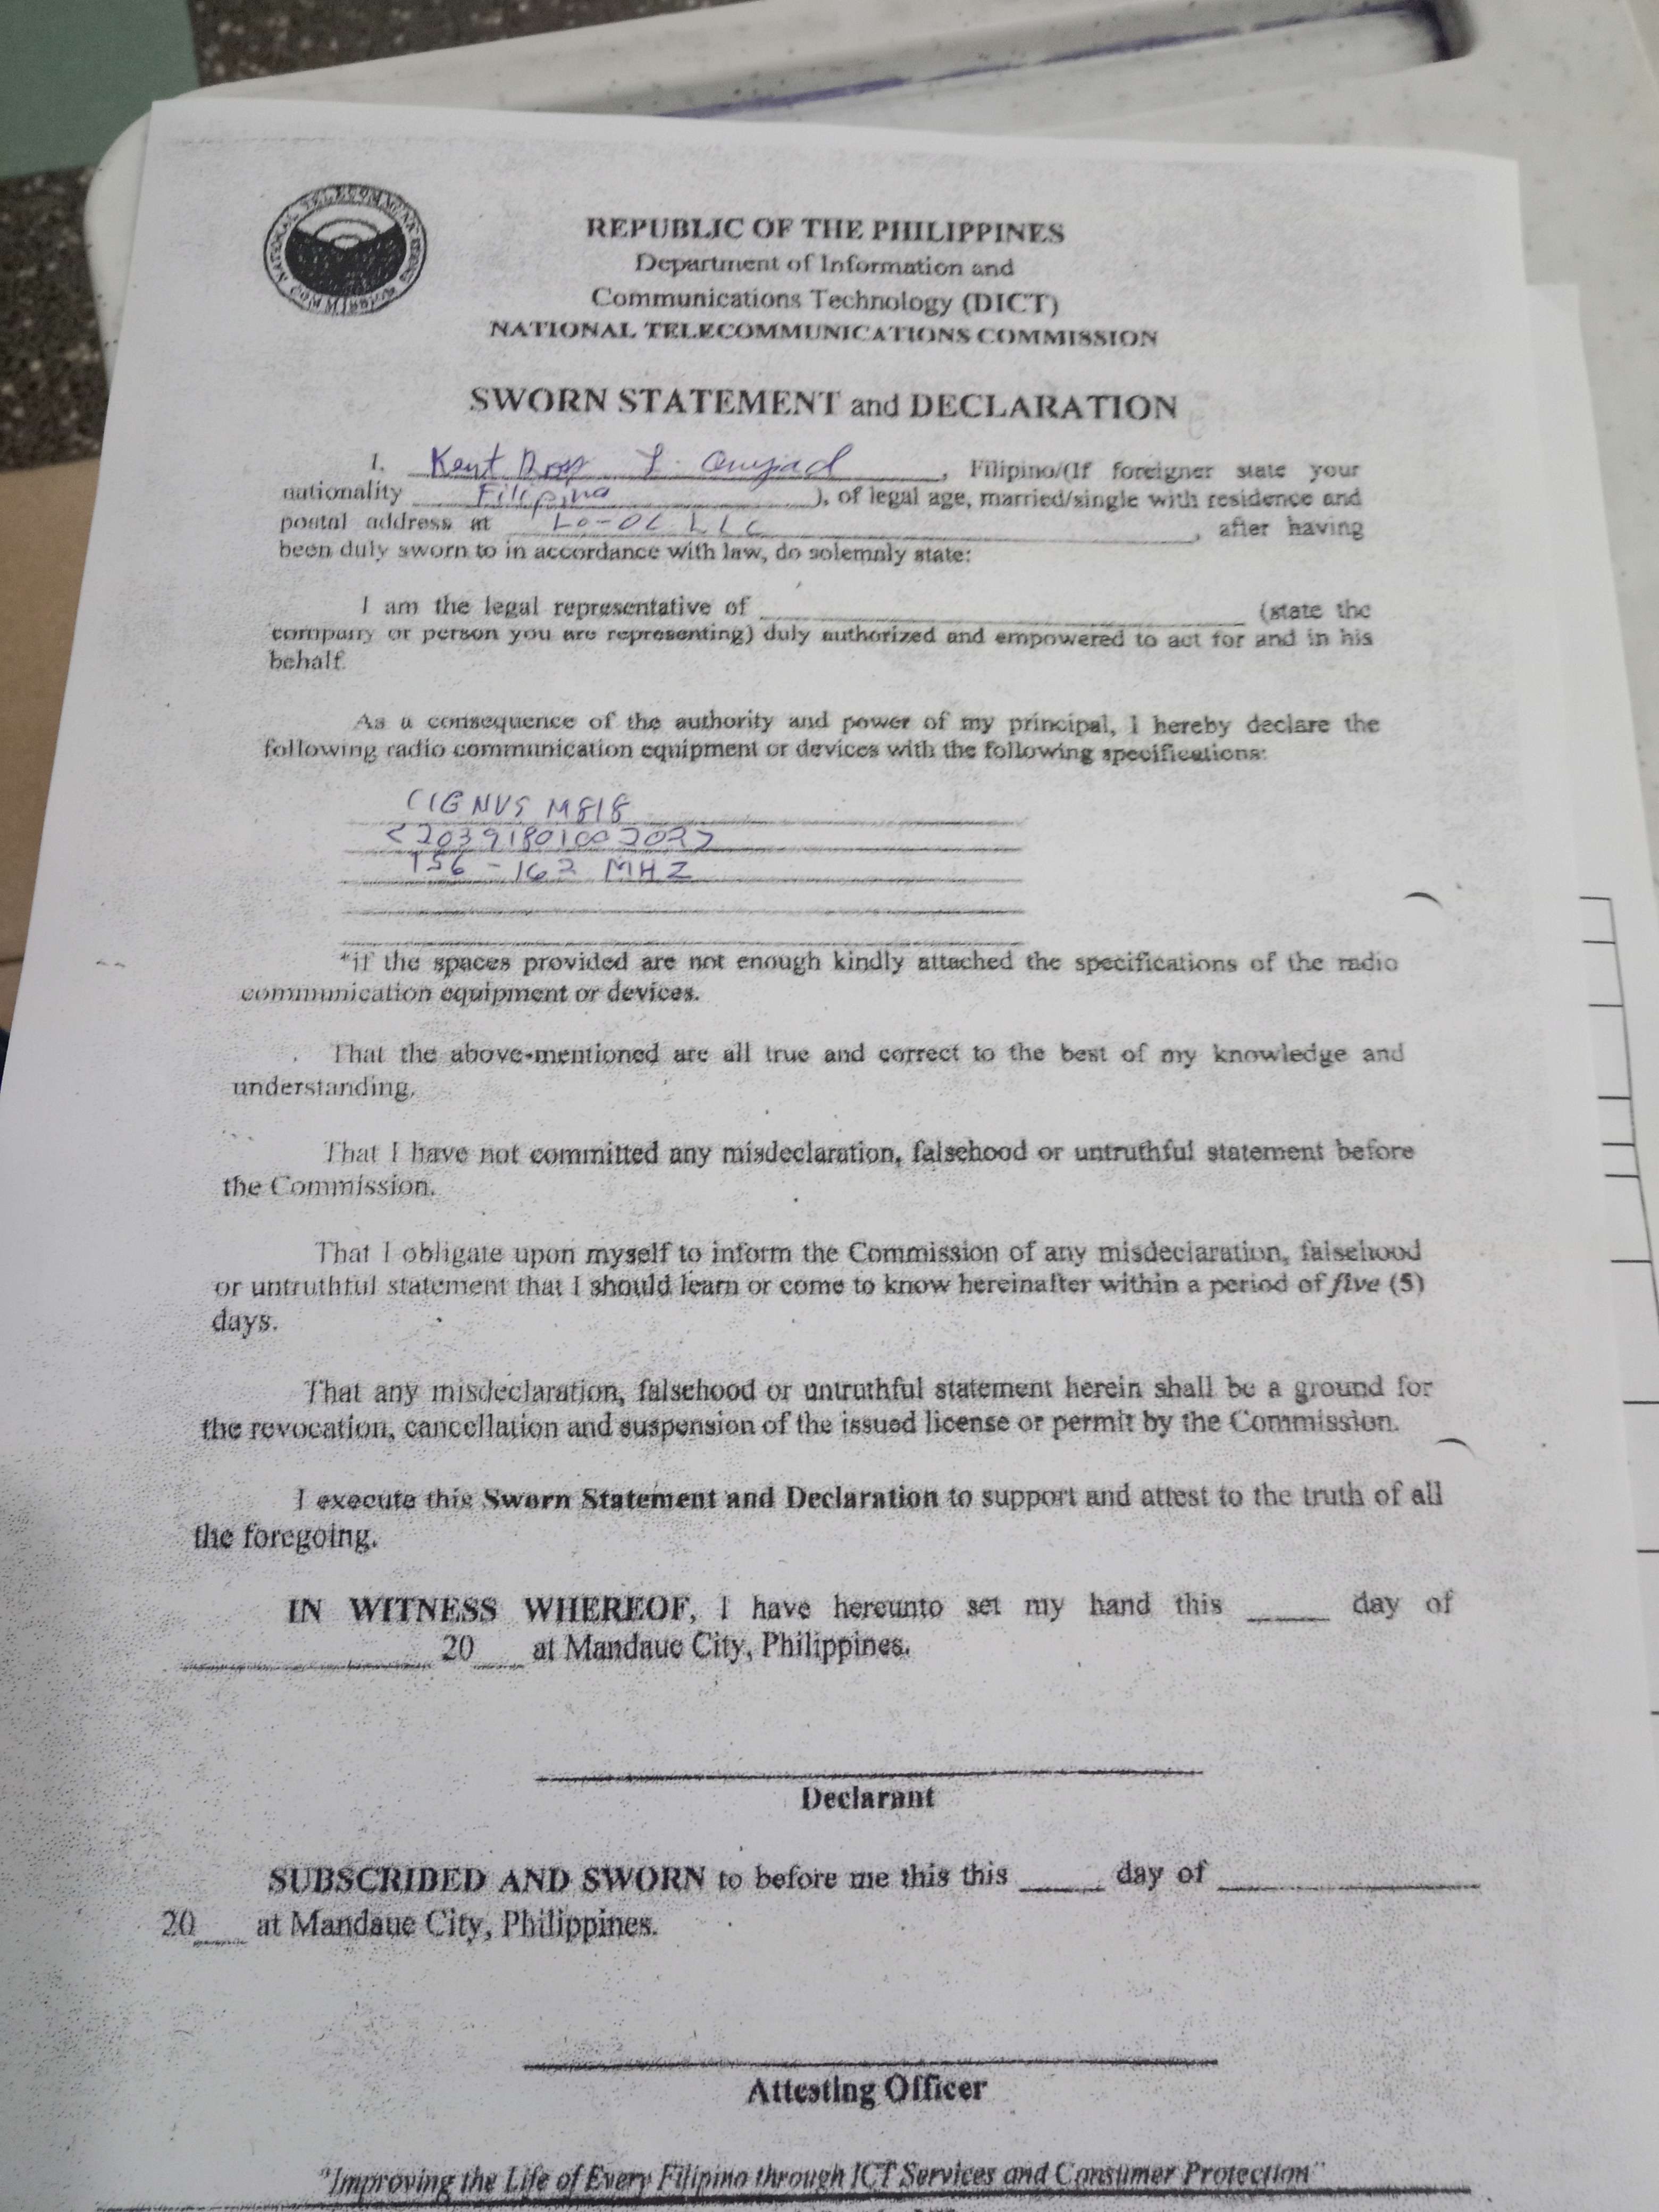 NATIONAL TELECOMMUNICATIONS COMMISSION
REPUBLIC OF THE PHILIPPINES
Department of Information and
Communications Technology (DICT)
NATIONAL TELECOMMUNICATIONS COMMISSION
SWORN STATEMENT and DECLARATION
I, Kent, Filipino/(If foreigner state your
nationality Filipino), of legal age, married/single with residence and
postal address at Lo-oc LLC, after having
been duly sworn to in accordance with law, do solemnly state:
I am the legal representative of (state the
company or person you are representing) duly authorized and empowered to act for and in his
behalf.
As a consequence of the authority and power of my principal, I hereby declare the
following radio communication equipment or devices with the following specifications:
CIGNUS M818
156 - 162 MHZ
*if the spaces provided are not enough kindly attached the specifications of the radio
communication equipment or devices.
That the above-mentioned are all true and correct to the best of my knowledge and
understanding.
That I have not committed any misdeclaration, falsehood or untruthful statement before
the Commission.
That I obligate upon myself to inform the Commission of any misdeclaration, falsehood
or untruthful statement that I should learn or come to know hereinafter within a period of five (5)
days.
That any misdeclaration, falsehood or untruthful statement herein shall be a ground for
the revocation, cancellation and suspension of the issued license or permit by the Commission.
I execute this Sworn Statement and Declaration to support and attest to the truth of all
the foregoing.
IN WITNESS WHEREOF, I have hereunto set my hand this ____ day of
____ 20__ at Mandaue City, Philippines.
Declarant
SUBSCRIBED AND SWORN to before me this this ____ day of ____
20__ at Mandaue City, Philippines.
Attesting Officer
"Improving the Life of Every Filipino through ICT Services and Consumer Protection"